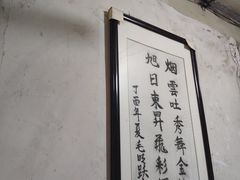 烟雲吐秀舞金
旭日東昇飛彩
丁酉年夏毛